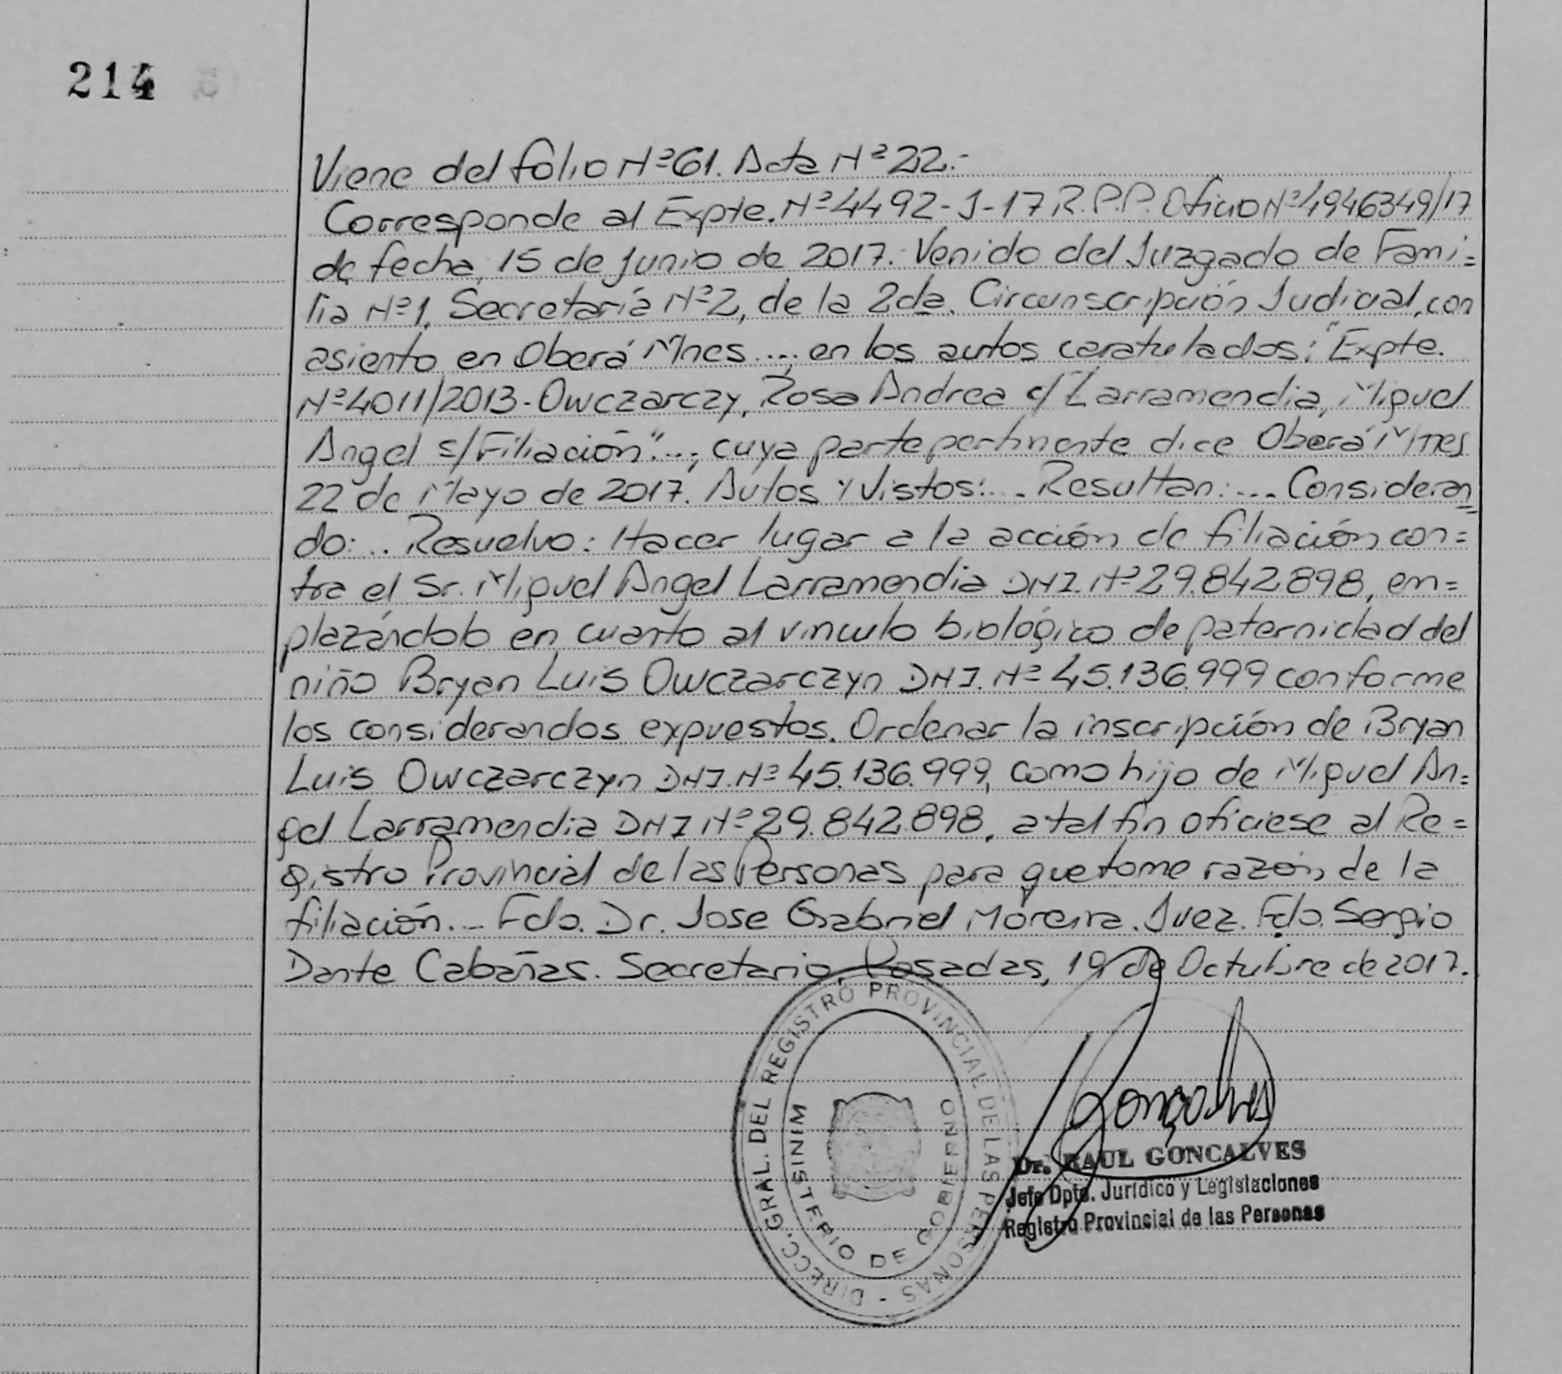 214
Viene del folio Nº61. Acta Nº22.-
Corresponde al Expte. Nº4492-J-17 R.P.P. Oficio Nº4946349/17
de fecha, 15 de Junio de 2017. Venido del Juzgado de Fami=
lia Nº1, Secretaría Nº2, de la 2da. Circunscripción Judicial, con
asiento en Oberá Mnes ... en los autos caratulados: "Expte.
Nº4011/2013-Owczarczy, Rosa Andrea c/ Larramendia, Miguel
Angel s/Filiación"..., cuya parte pertinente dice Oberá Mnes
22 de Mayo de 2017. Autos y Vistos:... Resultan:... Consideran
do:... Resuelvo: Hacer lugar a la acción de filiación con=
tra el Sr. Miguel Angel Larramendia DNI. Nº29.842.898, em=
plazándolo en cuanto al vinculo biológico de paternidad del
niño Bryan Luis Owczarczyn DNI. Nº 45.136.999 conforme
los considerandos expuestos. Ordenar la inscripción de Bryan
Luis Owczarczyn DNI. Nº 45.136.999, como hijo de Miguel An=
gel Larramendia DNI Nº29.842.898, a tal fin ofíciese al Re=
gistro Provincial de las Personas para que tome razón de la
filiación... Fdo. Dr. Jose Gabriel Moreira. Juez. Fdo. Sergio
Dante Cabañas. Secretario, Posadas, 19 de Octubre de 2017.
DIRECC. GRAL. DEL REGISTRO PROVINCIAL DE LAS PERSONAS -
MINISTERIO DE GOBIERNO
Gonçalves
Dr. RAUL GONCALVES
Jefe Dpto. Jurídico y Legislaciones
Registro Provincial de las Personas